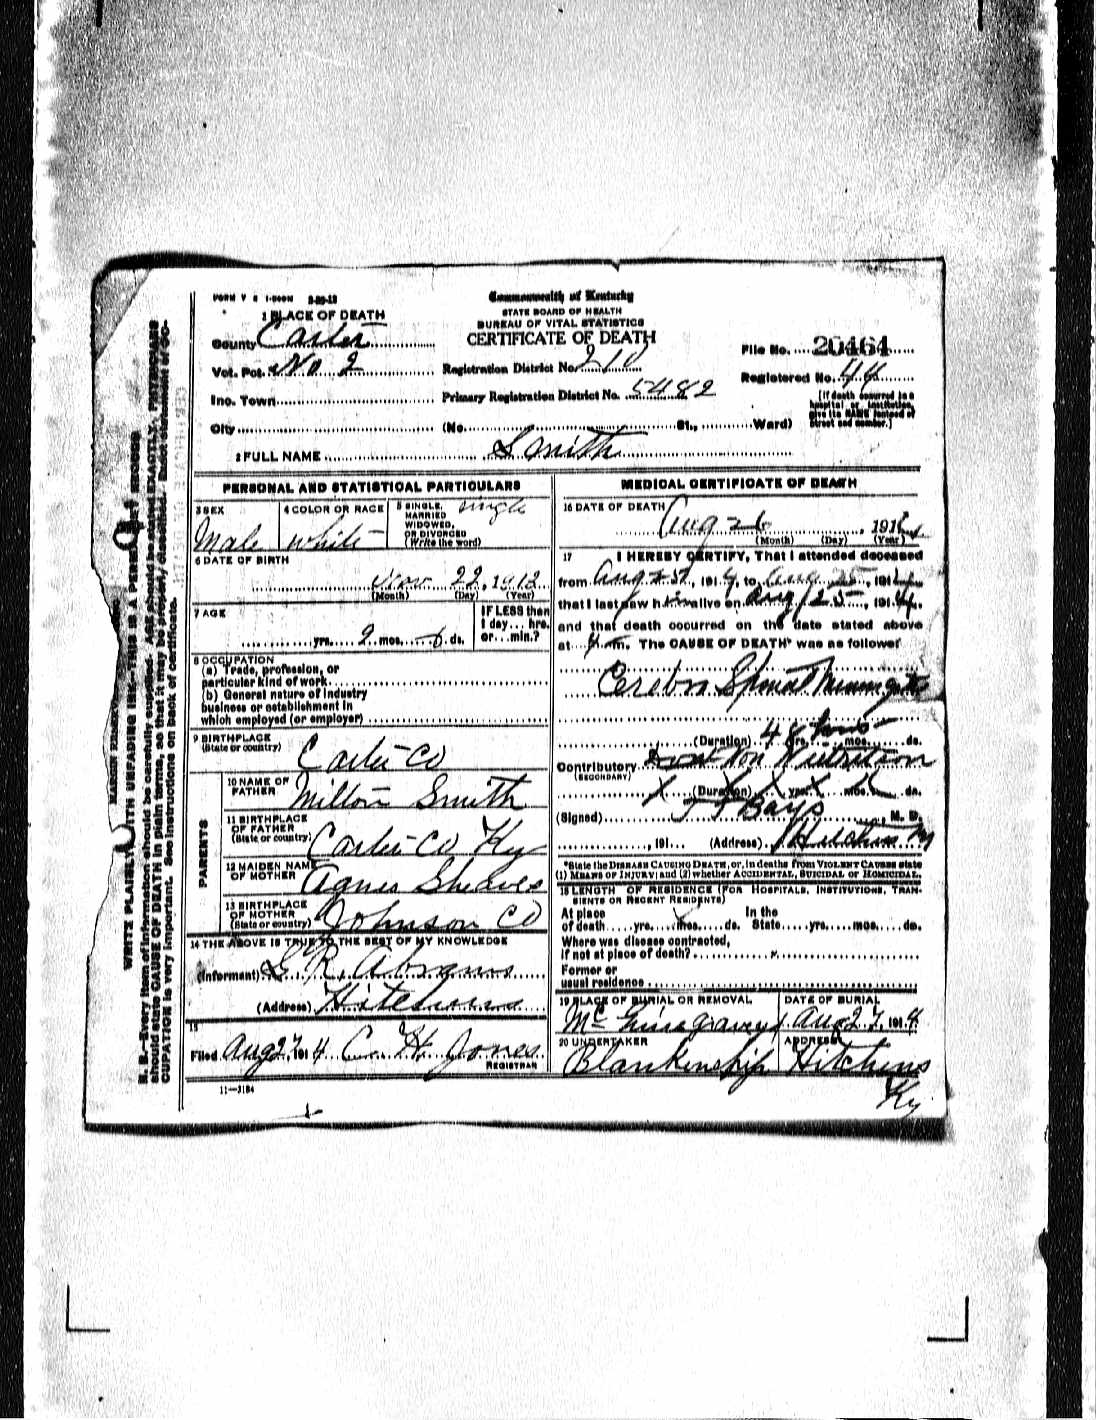 FORM V S 1-500M 3-25-12
Commonwealth of Kentucky
STATE BOARD OF HEALTH
BUREAU OF VITAL STATISTICS
CERTIFICATE OF DEATH
1 PLACE OF DEATH
County Carter
Vot. Pct. No 2
Inc. Town
City (No. St., Ward)
Registration District No. 210
Primary Registration District No. 5482
File No. 20464
Registered No. 44
[If death occurred in a hospital or institution, give its NAME instead of street and number.]
2 FULL NAME Smith
PERSONAL AND STATISTICAL PARTICULARS
3 SEX Male
4 COLOR OR RACE white
5 SINGLE, MARRIED WIDOWED, OR DIVORCED (Write the word) single
6 DATE OF BIRTH
Nov 22, 1912
(Month) (Day) (Year)
7 AGE
yrs. 9 mos. ds.
IF LESS than 1 day... hrs. or... min.?
8 OCCUPATION
(a) Trade, profession, or
particular kind of work
(b) General nature of Industry
business or establishment in
which employed (or employer)
9 BIRTHPLACE
(State or country) Carter Co
PARENTS
10 NAME OF FATHER Milton Smith
11 BIRTHPLACE OF FATHER (State or country) Carter Co Ky
12 MAIDEN NAME OF MOTHER Agnes
13 BIRTHPLACE OF MOTHER (State or country) Johnson Co
14 THE ABOVE IS TRUE TO THE BEST OF MY KNOWLEDGE
(Informant) R. Abrams
(Address) Hitchins
15
Filed Aug 27, 1914 C. H. Jones
REGISTRAR
11—3184
MEDICAL CERTIFICATE OF DEATH
16 DATE OF DEATH
Aug 26, 191
(Month) (Day) (Year)
17 I HEREBY CERTIFY, That I attended deceased
from Aug 25, 1914, to Aug 25, 1914,
that I last saw him alive on Aug 25, 1914,
and that death occurred on the date stated above
at m. The CAUSE OF DEATH* was as follows
Cerebro Spinal Meningitis
(Duration) 48 hrs yrs. mos. ds.
Contributory
(SECONDARY)
(Duration) yrs. mos. ds.
(Signed) Bays, M. D.
, 191 (Address) Hitchins
*State the DISEASE CAUSING DEATH, or, in deaths from VIOLENT CAUSES state
(1) MEANS OF INJURY; and (2) whether ACCIDENTAL, SUICIDAL or HOMICIDAL.
18 LENGTH OF RESIDENCE (FOR HOSPITALS, INSTITUTIONS, TRANSIENTS OR RECENT RESIDENTS)
At place of death yrs. mos. ds. In the State yrs. mos. ds.
Where was disease contracted,
if not at place of death?
Former or
usual residence
19 PLACE OF BURIAL OR REMOVAL
DATE OF BURIAL
Aug 27, 1914
20 UNDERTAKER
Blankenship
ADDRESS
Hitchins
Ky.
WRITE PLAINLY WITH UNFADING INK—THIS IS A PERMANENT RECORD
N. B.—Every item of information should be carefully supplied. AGE should be stated EXACTLY. PHYSICIANS
should state CAUSE OF DEATH in plain terms, so that it may be properly classified. Exact statement of OC-
CUPATION is very important. See instructions on back of certificate.